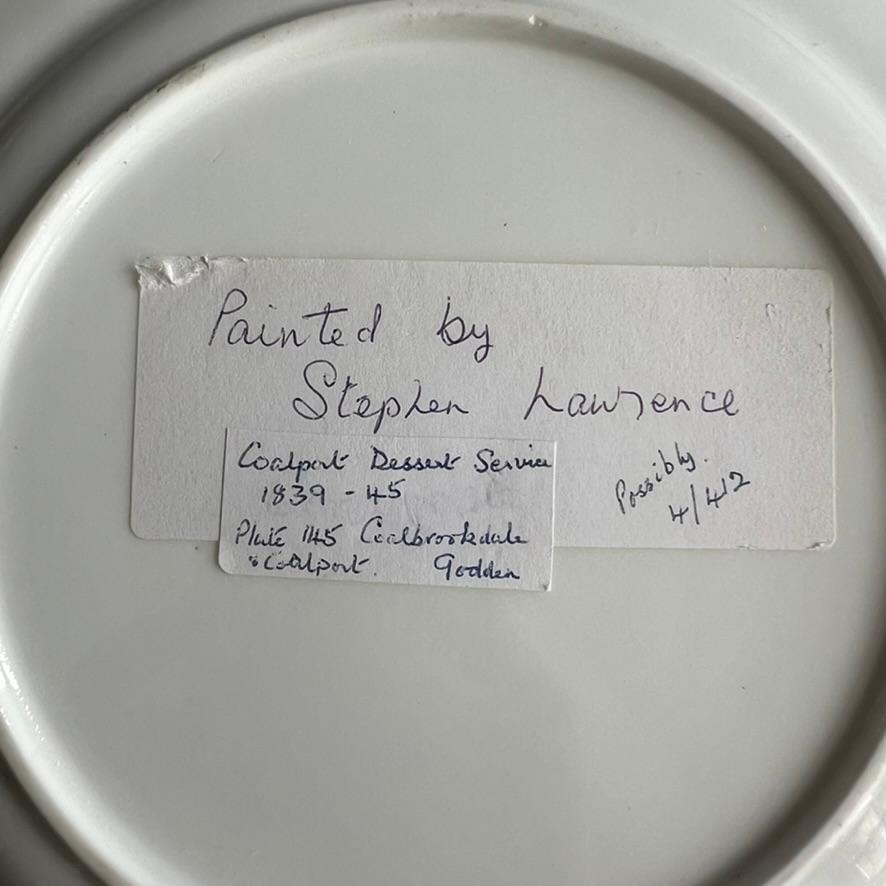 Painted by
Stephen Lawrence
Coalport Dessert Service
1839 - 45
Plate 145 Coalbrookdale
& Coalport. Godden
Possibly.
4/412